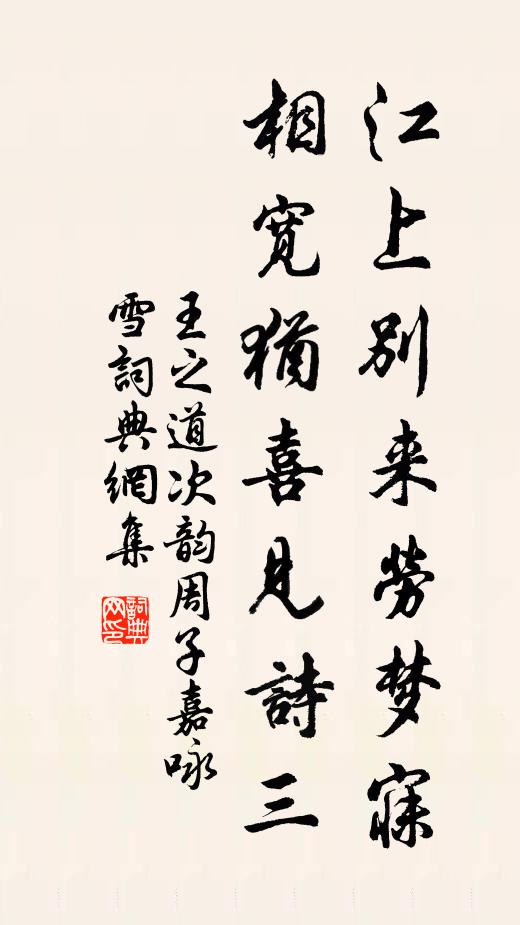 江上别来劳梦寐
相宽犹喜見詩三
王之道次韵周子嘉咏
雪詞典網集
詞典网印